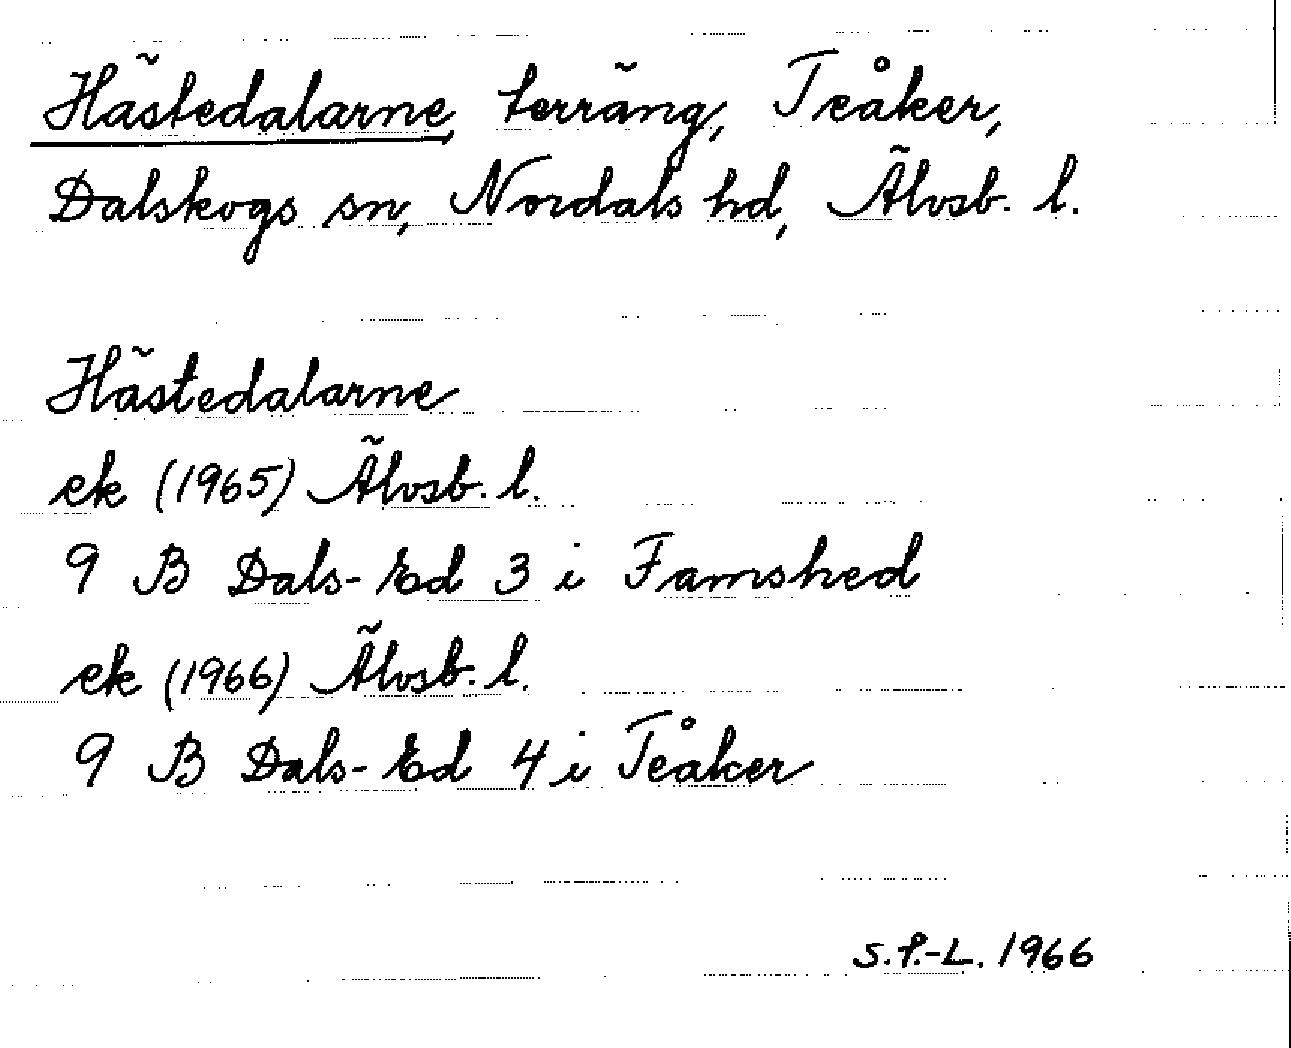 Hästedalarne, terräng, Teåker,
Dalskogs sn, Nordals hd, Älvsb. l.
Hästedalarne
ek (1965) Älvsb. l.
9 B Dals-Ed 3 i Famshed
ek (1966) Älvsb. l.
9 B Dals-Ed 4 i Teåker
S.P.-L. 1966